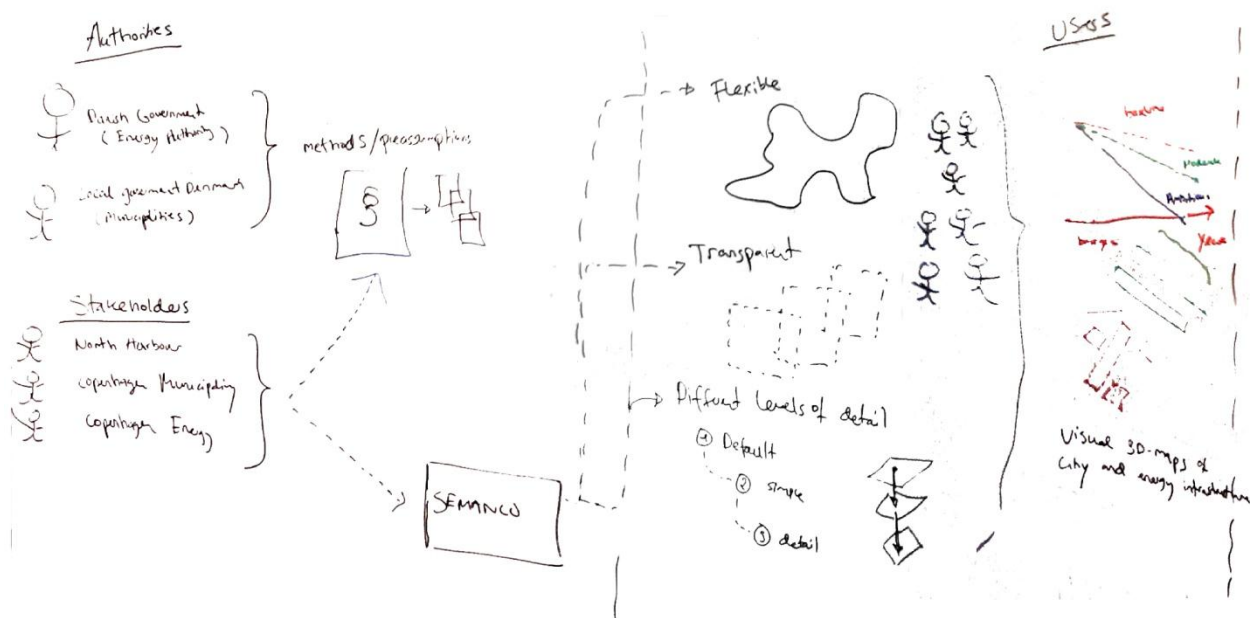 Authorities
Danish Government
(Energy Authority)
Local government Denmark
(Municiplities)
methods/preassumptions
Stakeholders
North Harbour
Copenhagen Municiplity
Copenhagen Energy
SEMANCO
Flexible
Transparent
Diffrent levels of detail
1 Default
2 simple
3 detail
Users
Moderate
Ambitious
Years
Visual 3D-maps of
City and energy infrastructure